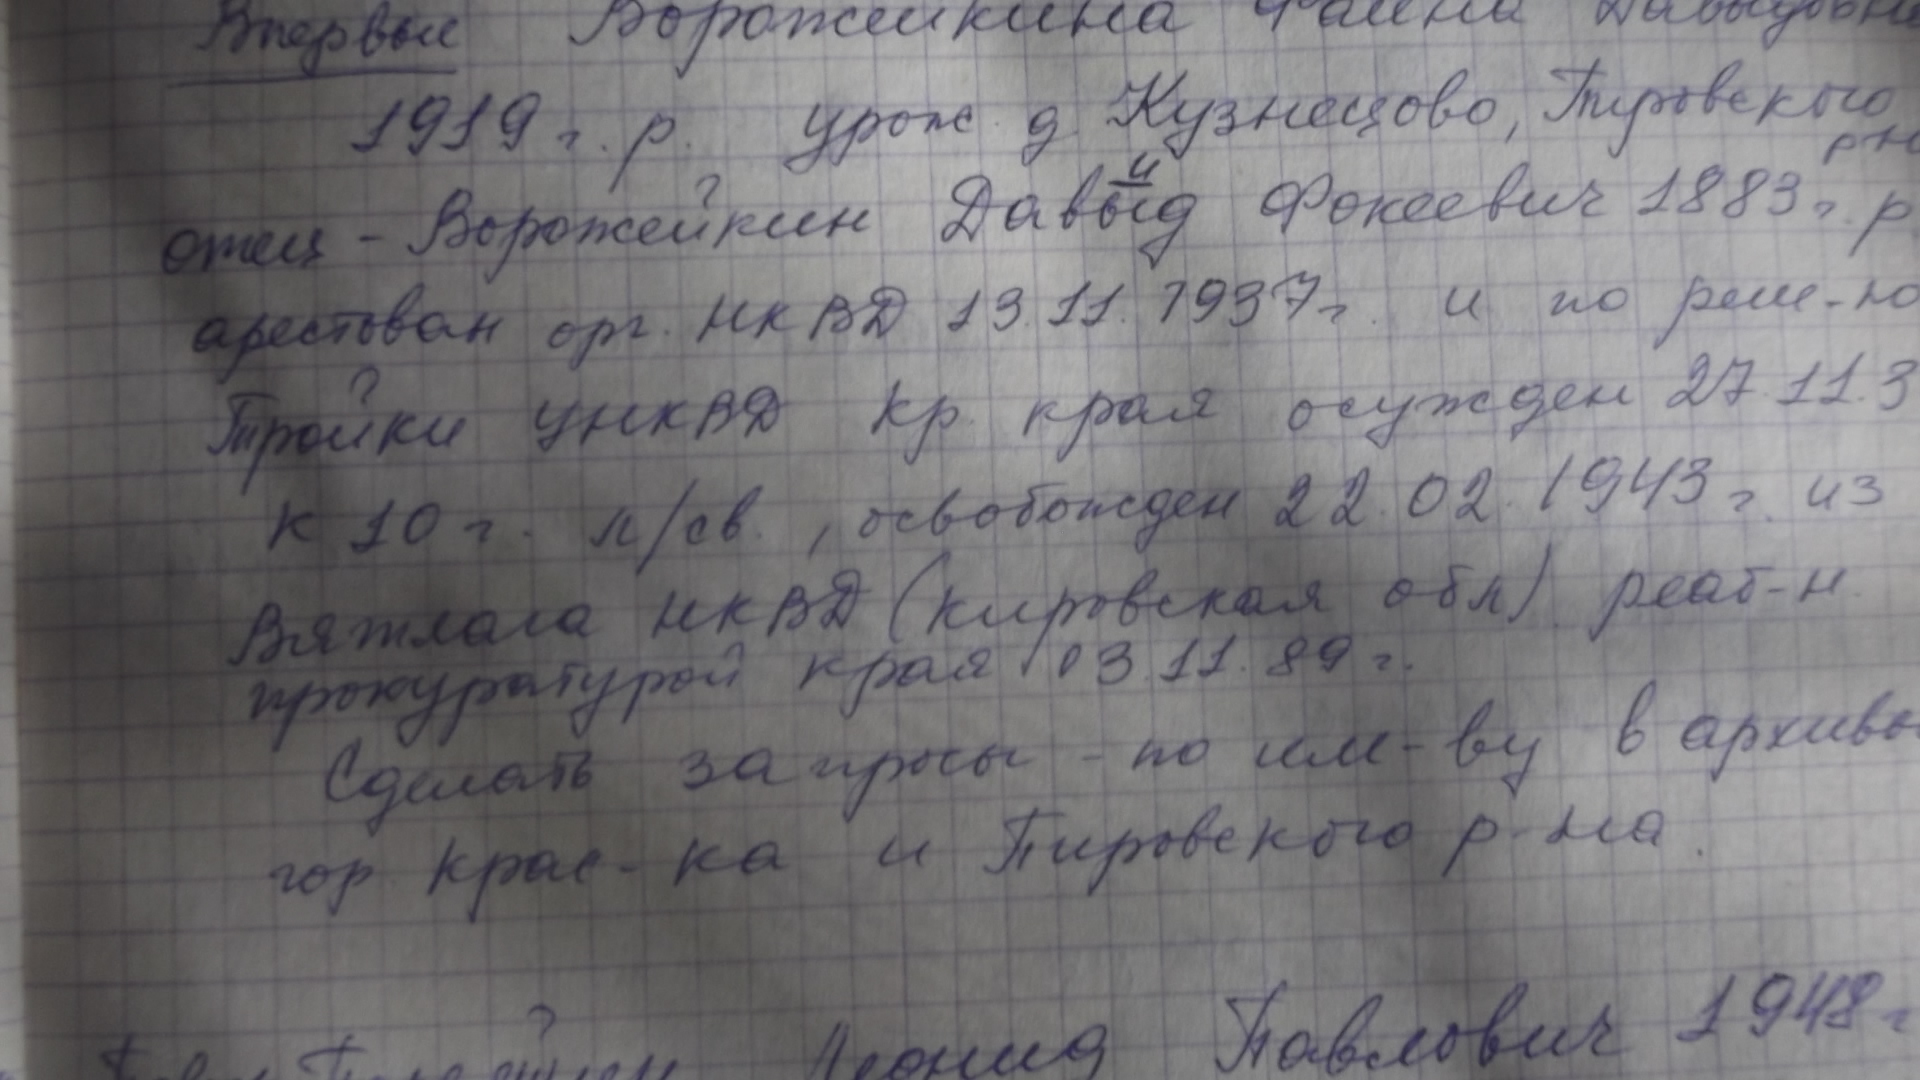 Впервые Ворожейкина Фаина Давыдовна
1919 г. р. урож д Кузнецово, Пировского
р-на
отец - Ворожейкин Давыд Фокеевич 1883 г. р
и
арестован орг. НКВД 13.11.1937 г. и по реш-ю
Тройки УНКВД Кр. края осужден 27.11.3
к 10 г. л/св., освобожден 22.02.1943 г. из
Вятлага НКВД (Кировская обл) реаб-н
прокуратурой края 03.11.89 г.
Сделать запросы - по им-ву в архивы
гор. Крас-ка и Пировского р-на.
Леонид Павлович 1948 г